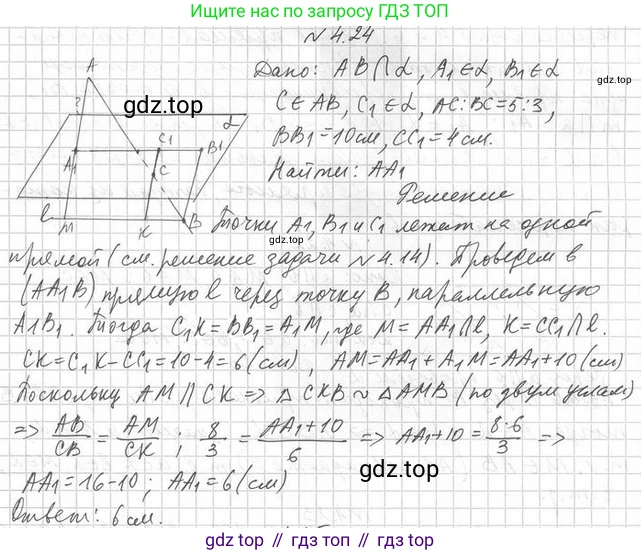 Ищите нас по запросу ГДЗ ТОП
№ 4.24
Дано: AB∩α, A₁∈α, B₁∈α
C∈AB, C₁∈α, AC:BC=5:3,
BB₁=10см, CC₁=4см.
Найти: AA₁
Решение
A
?
α
A₁
C₁
B₁
C
l
M
K
B
gdz.top
gdz.top
gdz.top
gdz.top
gdz.top
Точки A₁, B₁ и C₁ лежат на одной
прямой (см. решение задачи №4.14). Проведем в
(AA₁B) прямую l через точку B, параллельную
A₁B₁. Тогда C₁K=BB₁=A₁M, где M=AA₁∩l, K=CC₁∩l.
CK=C₁K-CC₁=10-4=6(см), AM=AA₁+A₁M=AA₁+10(см)
Поскольку AM∥CK => △CKB ~ △AMB (по двум углам)
=> AB/CB = AM/CK ; 8/3 = (AA₁+10)/6 => AA₁+10=(8·6)/3 =>
AA₁=16-10; AA₁=6(см)
Ответ: 6см.
gdz.top // gdz.top // gdz.top